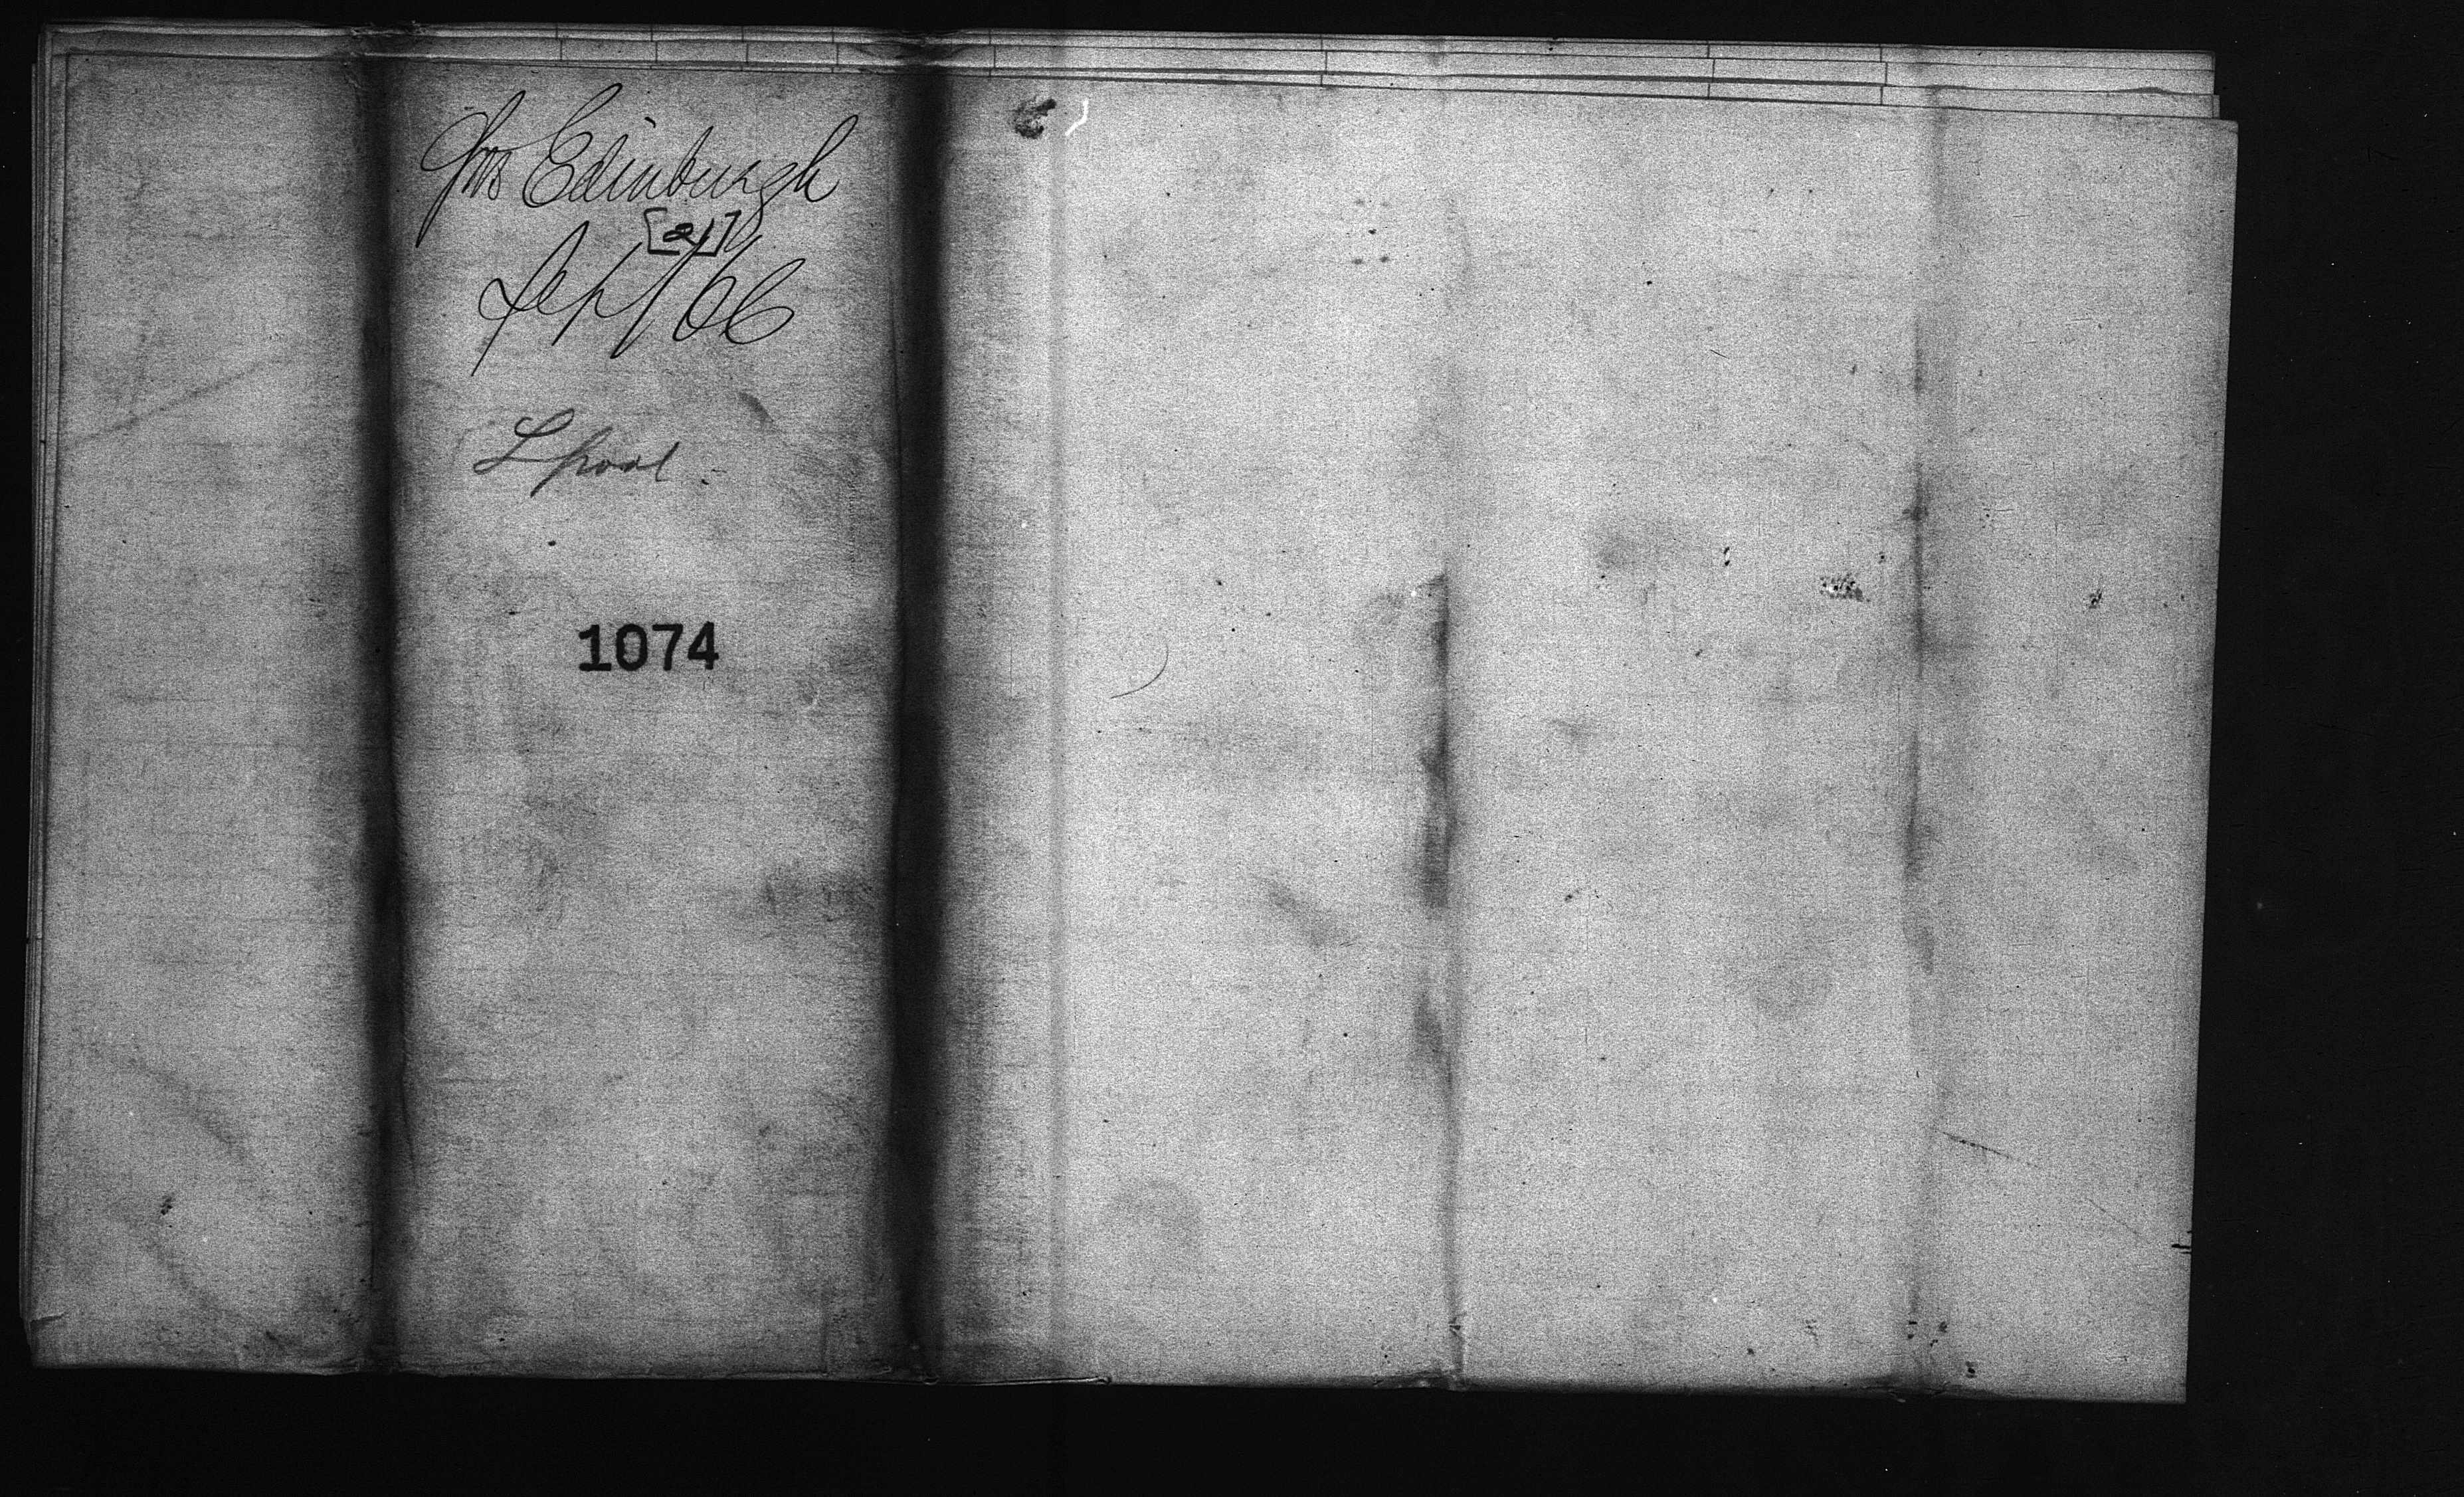 Jno Edinburgh
[21]
Sept/06
Lpool.
1074